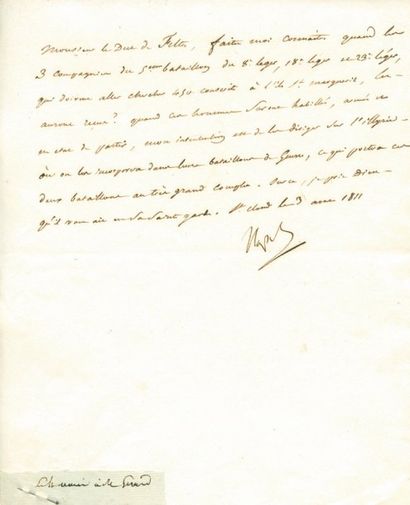 Monsieur le Duc de Feltre, faites moi connaître quand les
3 compagnies du 5eme bataillon du 8e leger, 18e leger et 23e leger,
qui doivent aller chercher 450 conscrits à l'île Ste marguerite, les
auront reçus? quand ces hommes seront habillés, armés et
en état de partir, mon intention est de les diriger sur l'Illyrie
où on les incorporera dans leurs bataillons de Guerre, ce qui portera ces
deux bataillons au très grand complet. Sur ce, je prie Dieu
qu'il vous ait en sa Sainte garde. St cloud le 3 1811